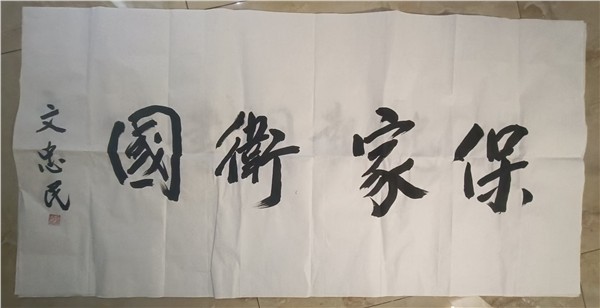 保家衛國
文忠民